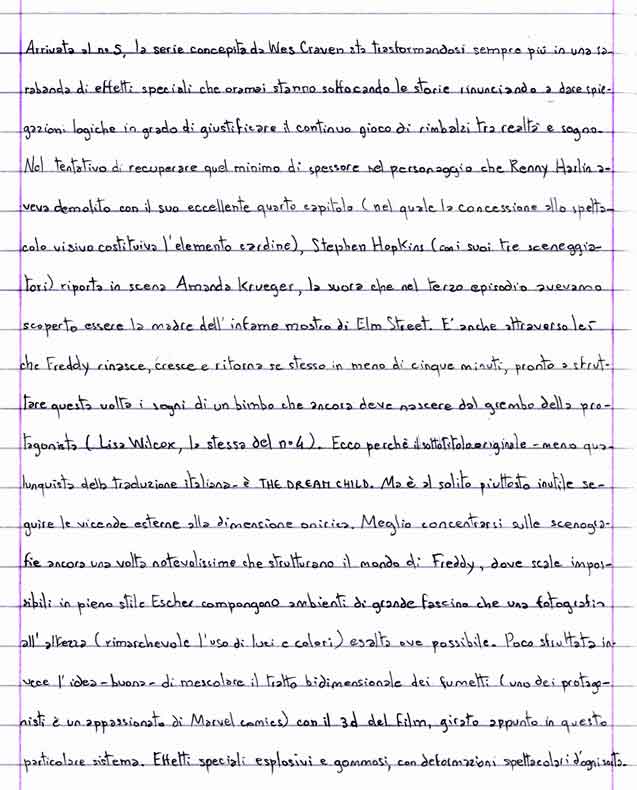 Arrivata al n° 5, la serie concepita da Wes Craven sta trasformandosi sempre più in una sa-
rabanda di effetti speciali che oramai stanno soffocando le storie rinunciando a dare spie-
gazioni logiche in grado di giustificare il continuo gioco di rimbalzi tra realtà e sogno.
Nel tentativo di recuperare quel minimo di spessore nel personaggio che Renny Harlin a-
veva demolito con il suo eccellente quarto capitolo (nel quale la concessione allo spetta-
colo visivo costituiva l'elemento cardine), Stephen Hopkins (coi suoi tre sceneggia-
tori) riporta in scena Amanda Krueger, la suora che nel terzo episodio avevamo
scoperto essere la madre dell'infame mostro di Elm Street. E' anche attraverso lei
che Freddy rinasce, cresce e ritorna se stesso in meno di cinque minuti, pronto a sfrut-
tare questa volta i sogni di un bimbo che ancora deve nascere dal grembo della pro-
tagonista (Lisa Wilcox, la stessa del n° 4). Ecco perchè il sottotitolo originale - meno qua-
lunquista della traduzione italiana - è THE DREAM CHILD. Ma è al solito piuttosto inutile se-
guire le vicende esterne alla dimensione onirica. Meglio concentrarsi sulle scenogra-
fie ancora una volta notevolissime che strutturano il mondo di Freddy, dove scale impos-
sibili in pieno stile Escher compongono ambienti di grande fascino che una fotografia
all'altezza (rimarchevole l'uso di luci e colori) esalta ove possibile. Poco sfruttata in-
vece l'idea - buona - di mescolare il tratto bidimensionale dei fumetti (uno dei protago-
nisti è un appassionato di Marvel comics) con il 3d del film, girato appunto in questo
particolare sistema. Effetti speciali esplosivi e gommosi, con deformazioni spettacolari d'ogni sorta.